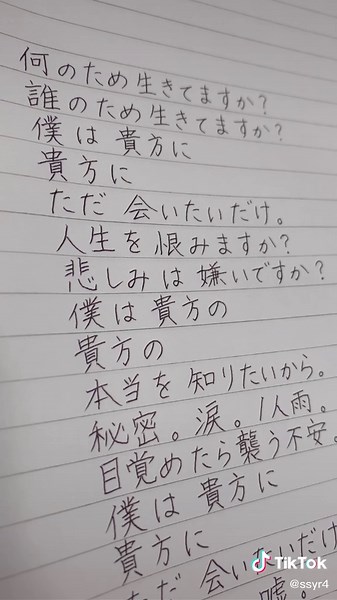 何のため生きてますか?
誰のため生きてますか?
僕は 貴方に
貴方に
ただ 会いたいだけ。
人生を 恨みますか?
悲しみは 嫌いですか?
僕は 貴方の
貴方の
本当を 知りたいから。
秘密。涙。1人雨。
目覚めたら襲う不安。
僕は 貴方に
貴方に
ただ 会いたいだけ
嘘。
TikTok
@ssyr4